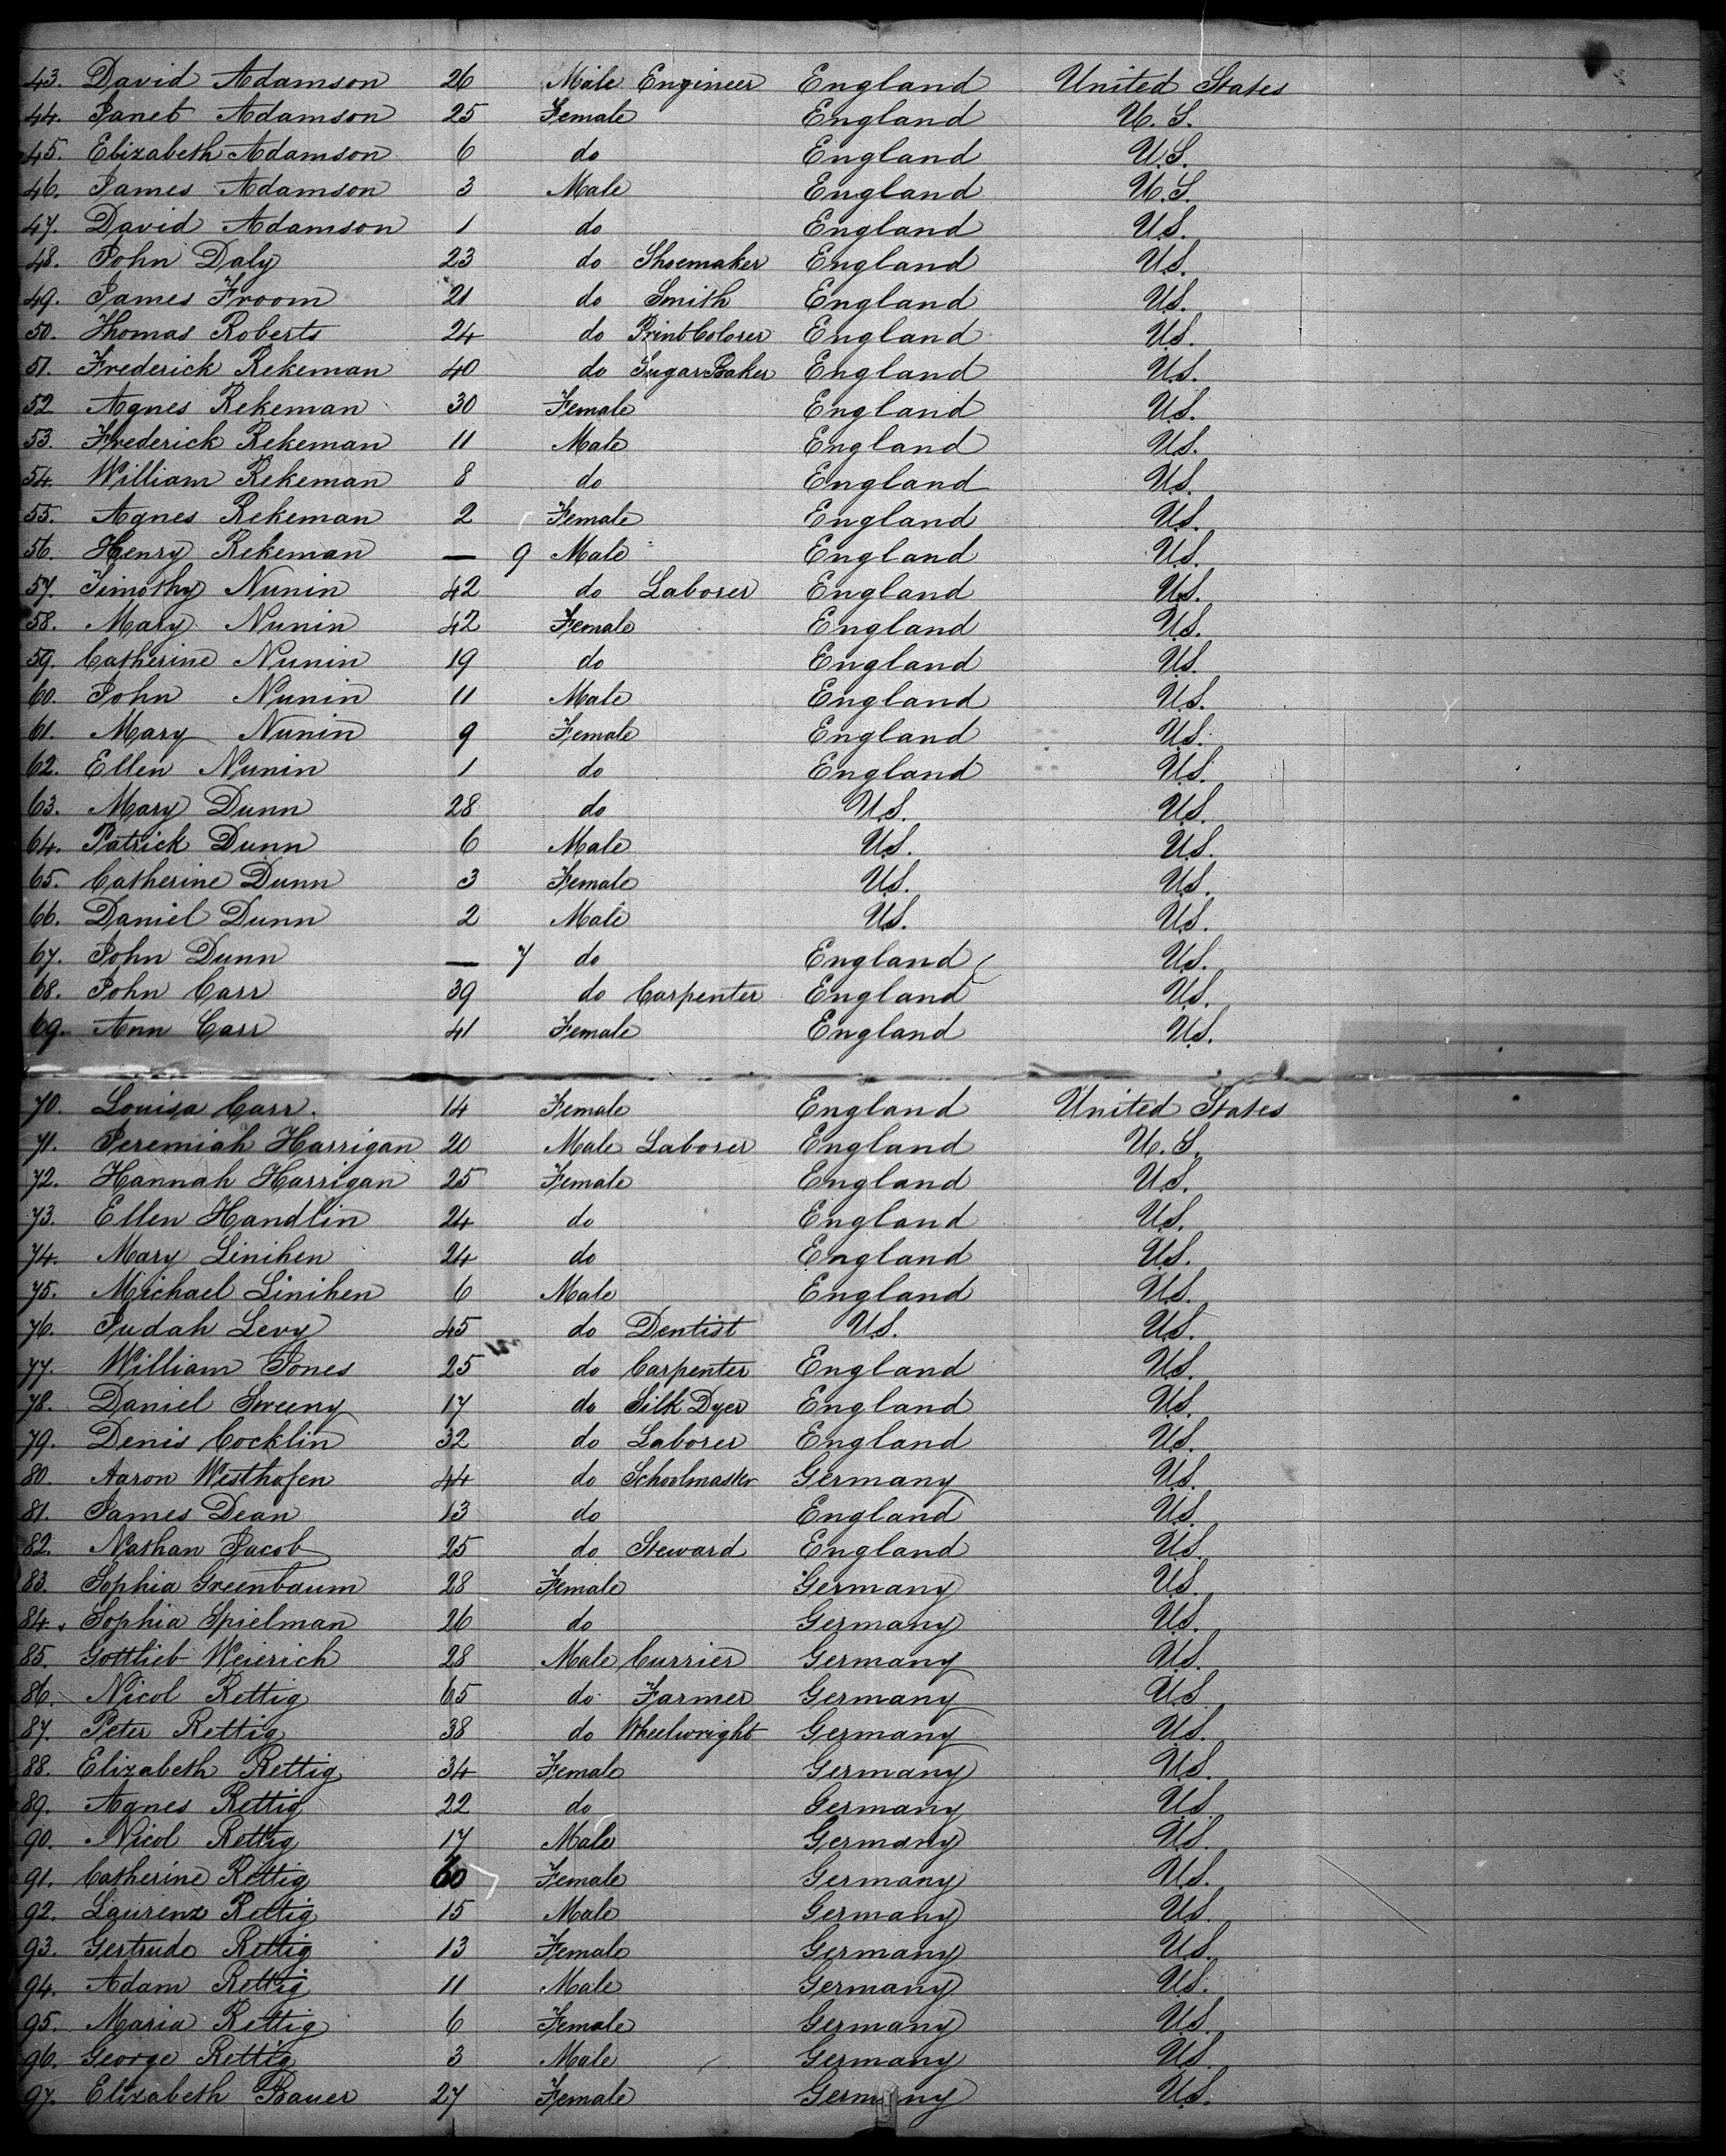 43. David Adamson 26 Male Engineer England United States
44. Janet Adamson 25 Female England U.S.
45. Elizabeth Adamson 6 do England U.S.
46. James Adamson 3 Male England U.S.
47. David Adamson 1 do England U.S.
48. John Daly 23 do Shoemaker England U.S.
49. James Froom 21 do Smith England U.S.
50. Thomas Roberts 24 do Print Colorer England U.S.
51. Frederick Rekeman 40 do Sugar Baker England U.S.
52. Agnes Rekeman 30 Female England U.S.
53. Frederick Rekeman 11 Male England U.S.
54. William Rekeman 8 do England U.S.
55. Agnes Rekeman 2 Female England U.S.
56. Henry Rekeman — 9 Male England U.S.
57. Timothy Nunin 42 do Laborer England U.S.
58. Mary Nunin 42 Female England U.S.
59. Catherine Nunin 19 do England U.S.
60. John Nunin 11 Male England U.S.
61. Mary Nunin 9 Female England U.S.
62. Ellen Nunin 1 do England U.S.
63. Mary Dunn 28 do U.S. U.S.
64. Patrick Dunn 6 Male U.S. U.S.
65. Catherine Dunn 3 Female U.S. U.S.
66. Daniel Dunn 2 Male U.S. U.S.
67. John Dunn — 7 do England U.S.
68. John Carr 39 do Carpenter England U.S.
69. Ann Carr 41 Female England U.S.
70. Louisa Carr. 14 Female England United States
71. Jeremiah Harrigan 20 Male Laborer England U.S.
72. Hannah Harrigan 25 Female England U.S.
73. Ellen Handlin 24 do England U.S.
74. Mary Linihen 24 do England U.S.
75. Michael Linihen 6 Male England U.S.
76. Judah Levy 45 do Dentist U.S. U.S.
77. William Jones 25 do Carpenter England U.S.
78. Daniel Sweeny 17 do Silk Dyer England U.S.
79. Denis Cocklin 32 do Laborer England U.S.
80. Aaron Westhofen 44 do Schoolmaster Germany U.S.
81. James Dean 13 do England U.S.
82. Nathan Jacob 25 do Steward England U.S.
83. Sophia Greenbaum 28 Female Germany U.S.
84. Sophia Spielman 26 do Germany U.S.
85. Gottlieb Weierich 28 Male Currier Germany U.S.
86. Nicol Rettig 65 do Farmer Germany U.S.
87. Peter Rettig 38 do Wheelwright Germany U.S.
88. Elizabeth Rettig 34 Female Germany U.S.
89. Agnes Rettig 22 do Germany U.S.
90. Nicol Rettig 17 Male Germany U.S.
91. Catherine Rettig 60 Female Germany U.S.
92. Laurenz Rettig 15 Male Germany U.S.
93. Gertrude Rettig 13 Female Germany U.S.
94. Adam Rettig 11 Male Germany U.S.
95. Maria Rettig 6 Female Germany U.S.
96. George Rettig 3 Male Germany U.S.
97. Elizabeth Bauer 27 Female Germany U.S.